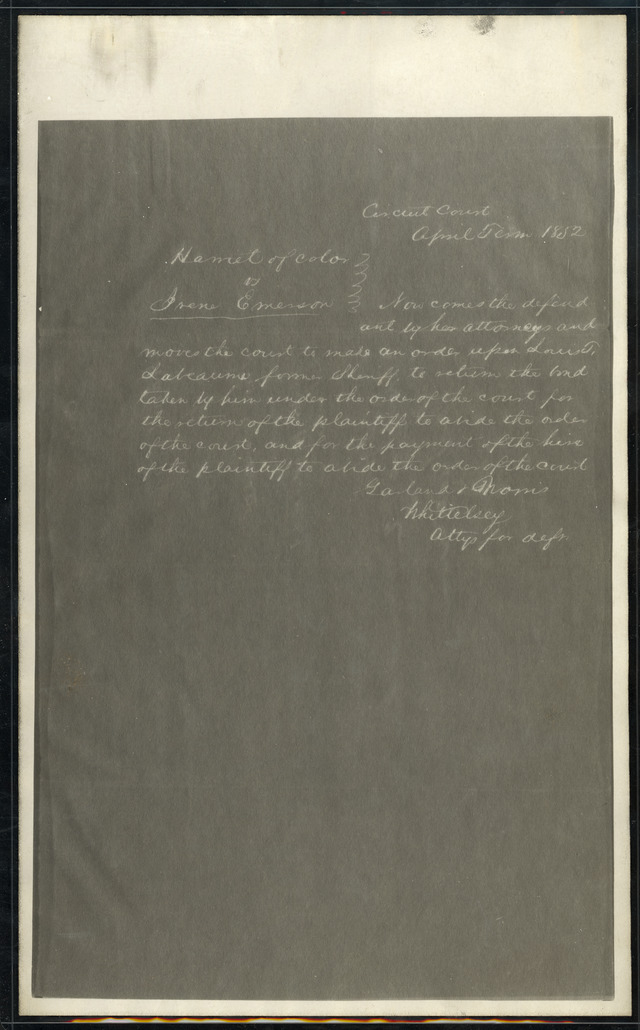 Circuit Court
April Term 1852
Harriet of color
vs
Irene Emerson
Now comes the defend
ant by her attorneys and
moves the court to made an order upon Louis T.
Labeaume former Sheriff to return the bond
taken by him under the order of the court for
the return of the plaintiff to abide the order
of the court, and for the payment of the hire
of the plaintiff to abide the order of the court
Garland & Morris
Whittelsey
Attys for deft.